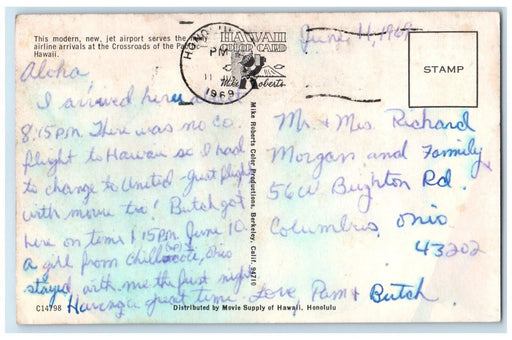 This modern, new, jet airport serves the
airline arrivals at the Crossroads of the Pa
Hawaii.
HAWAII
COLOR CARD
Mike Roberts
HONO
PM
11 JU
1969
June 11, 1969
STAMP
Aloha
I arrived here
8:15 PM. There was no co.
flight to Hawaii so I had
to change to United - great flight
with movie too! Butch got
here on time 1:15 PM June 10.
a girl from Chillicothe, Ohio
stayed with me the first night
Having a great time Love, Pam & Butch
Mr. & Mrs. Richard
Morgan and Family
56 W. Brighton Rd.
Columbus, Ohio
43202
Mike Roberts Color Productions, Berkeley, Calif. 94710
C14798
Distributed by Movie Supply of Hawaii, Honolulu